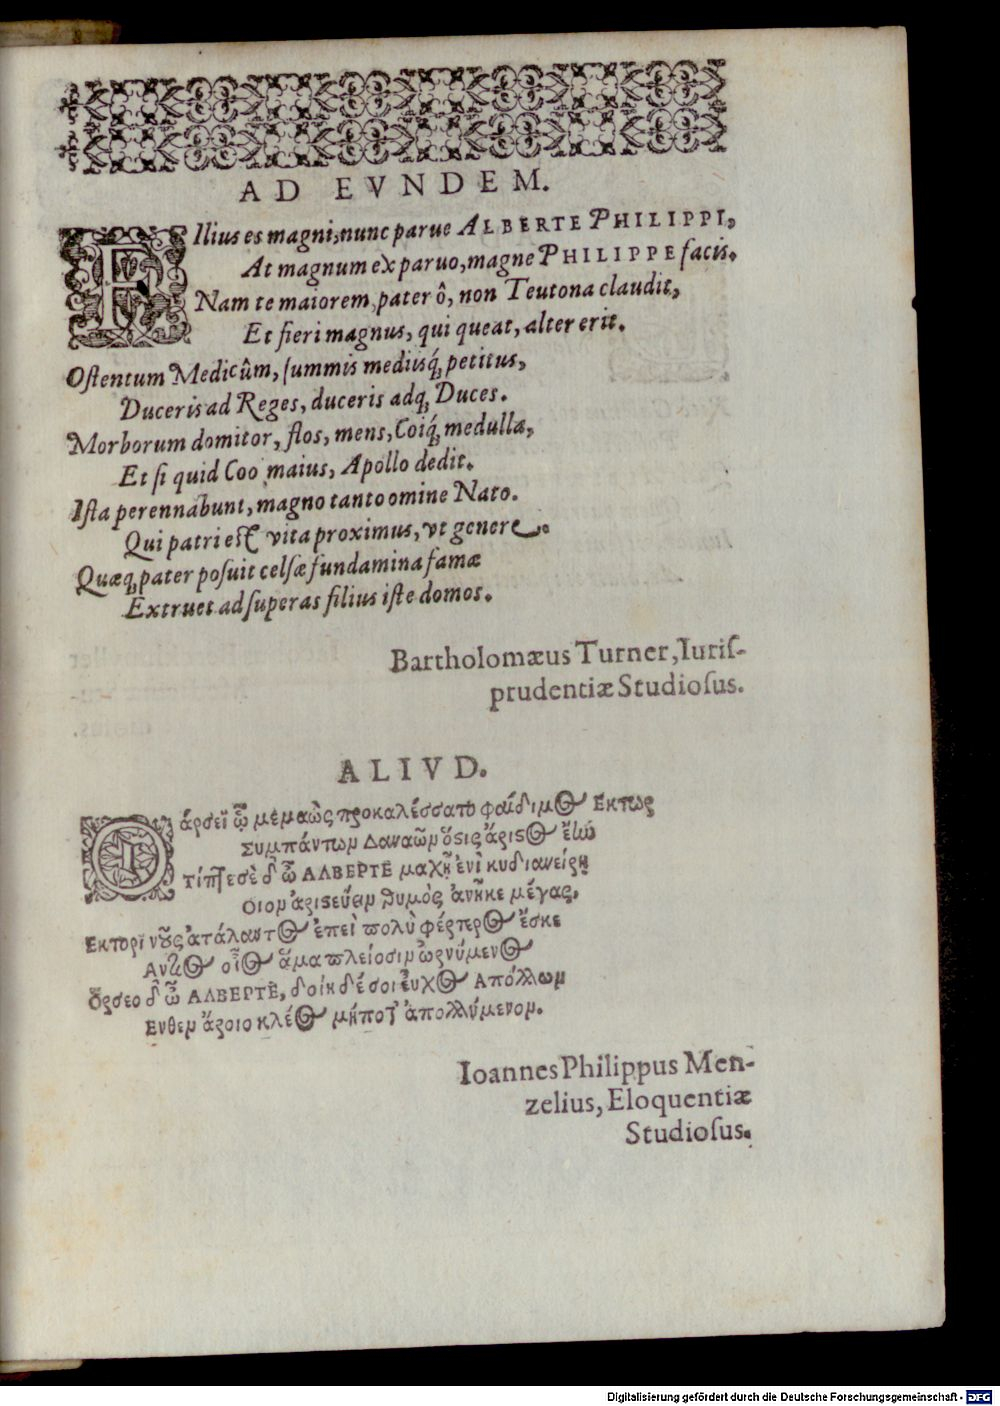 AD EVNDEM.
FIlius es magni, nunc parue ALBERTE PHILIPPI,
At magnum ex paruo, magne PHILIPPE facis.
Nam te maiorem, pater ô, non Teutona claudit,
Et fieri magnus, qui queat, alter erit.
Ostentum Medicûm, summis mediisq́; petitus,
Duceris ad Reges, duceris adq; Duces.
Morborum domitor, flos, mens, Coiq́; medulla,
Et si quid Coo maius, Apollo dedit.
Ista perennabunt, magno tanto omine Nato.
Qui patri est vita proximus, vt genere.
Quæq; pater posuit celsæ fundamina famæ
Extruet ad superas filius iste domos.
Bartholomæus Turner, Iuris-
prudentiæ Studiosus.
ALIVD.
Θάρσεϊ ᾧ μεμαὼς προκαλέσσατο φαίδιμος Εκτωρ
Συμπάντων Δαναῶν ὅστις ἄριστος ἔῃ
Τίπτε σὲ δ' ὦ ΑΛΒΕΡΤΕ μαχῇ ἐνὶ κυδιανείρῃ
Οιον ἀριστεύειν θυμὸς ἀνῆκε μέγας.
Εκτορϊ νοῦς ἀτάλαντος ἐπεὶ πολὺ φέρτερος ἔσκε
Αντος οἶος ἅμα πλείοσιν ὠρνύμενος
Ὄρσεο δ' ὦ ΑΛΒΕΡΤΕ, δοίη δέ σοι εὖχος Απόλλων
Ενθεν ἄροιο κλέος μήποτ' ἀπολλύμενον.
Ioannes Philippus Men-
zelius, Eloquentiæ
Studiosus.
Digitalisierung gefördert durch die Deutsche Forschungsgemeinschaft - DFG